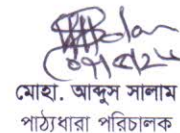 মোহা. আব্দুস সালাম
পাঠ্যধারা পরিচালক